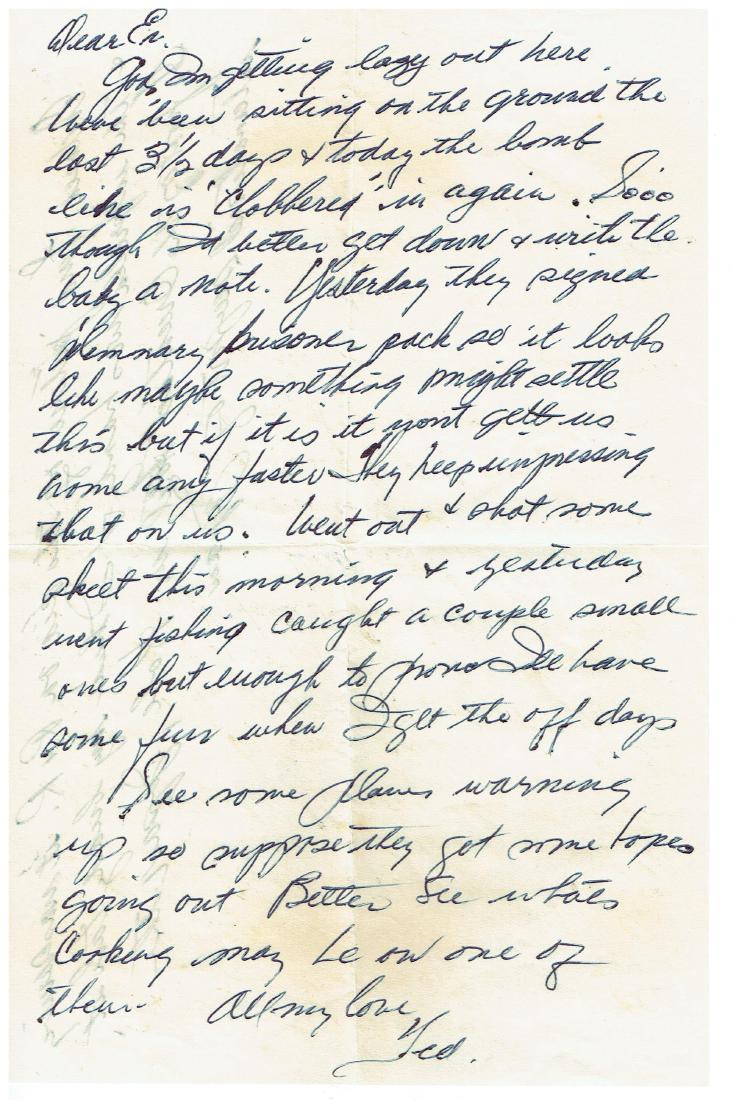 Dear Er.
God, Im getting lazy out here.
Weve been sitting on the ground the
last 3 1/2 days & today the bomb
line is "Clobbered" in again. Sooo
though Id better get down & write the
baby a note. Yesterday they signed
prisoner pack so it looks
like maybe something might settle
this but if it is it wont gett us
home any faster They keep impressing
that on us. Went out & shot some
skeet this morning & yesterday
went fishing caught a couple small
ones but enough to prove Ill have
some fun when I get the off days
See some planes warming
up so suppose they got some hopes
going out Better see whats
Cooking may be on one of
them. All my love
Ted.